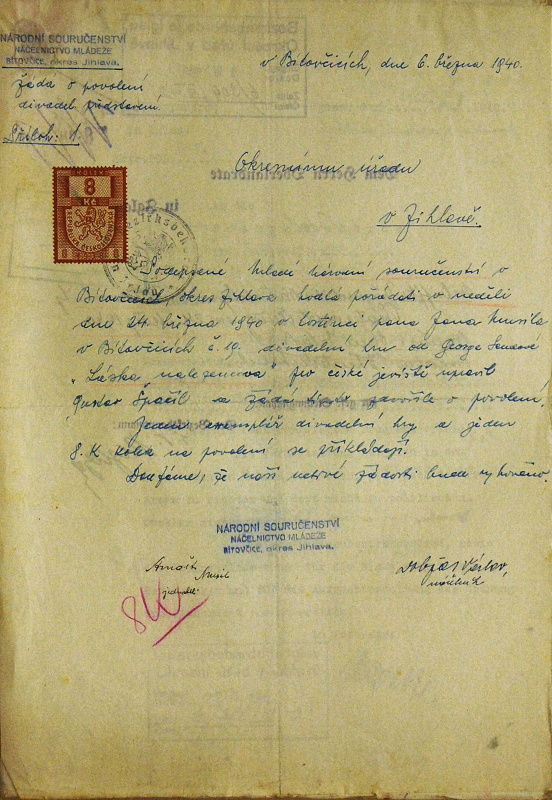 NÁRODNÍ SOURUČENSTVÍ
NÁČELNICTVO MLÁDEŽE
BÍTOVČICE, okres Jihlava.
v Bítovčicích, dne 6. března 1940.
žádá o povolení
divadel. představení
Příloh: 1.
Okresnímu úřadu
v Jihlavě.
KOLEK
8
Kč
Podepsané Mladé národní souručenství v
Bítovčicích okres Jihlava hodlá pořádati v neděli
dne 24. března 1940 v hostinci pana Jana Musila
v Bítovčicích č. 10. divadelní hru od George Sandové
"Láska nalezencova" pro české jeviště upravil
Gustav a žádá o povolení.
Jeden exemplář divadelní hry a jeden
8. K kolek na povolení se přikládají.
Doufáme, že naší uctivé žádosti bude vyhověno.
NÁRODNÍ SOURUČENSTVÍ
NÁČELNICTVO MLÁDEŽE
BÍTOVČICE, okres Jihlava.
Musil
jednatel
náčelník
8K